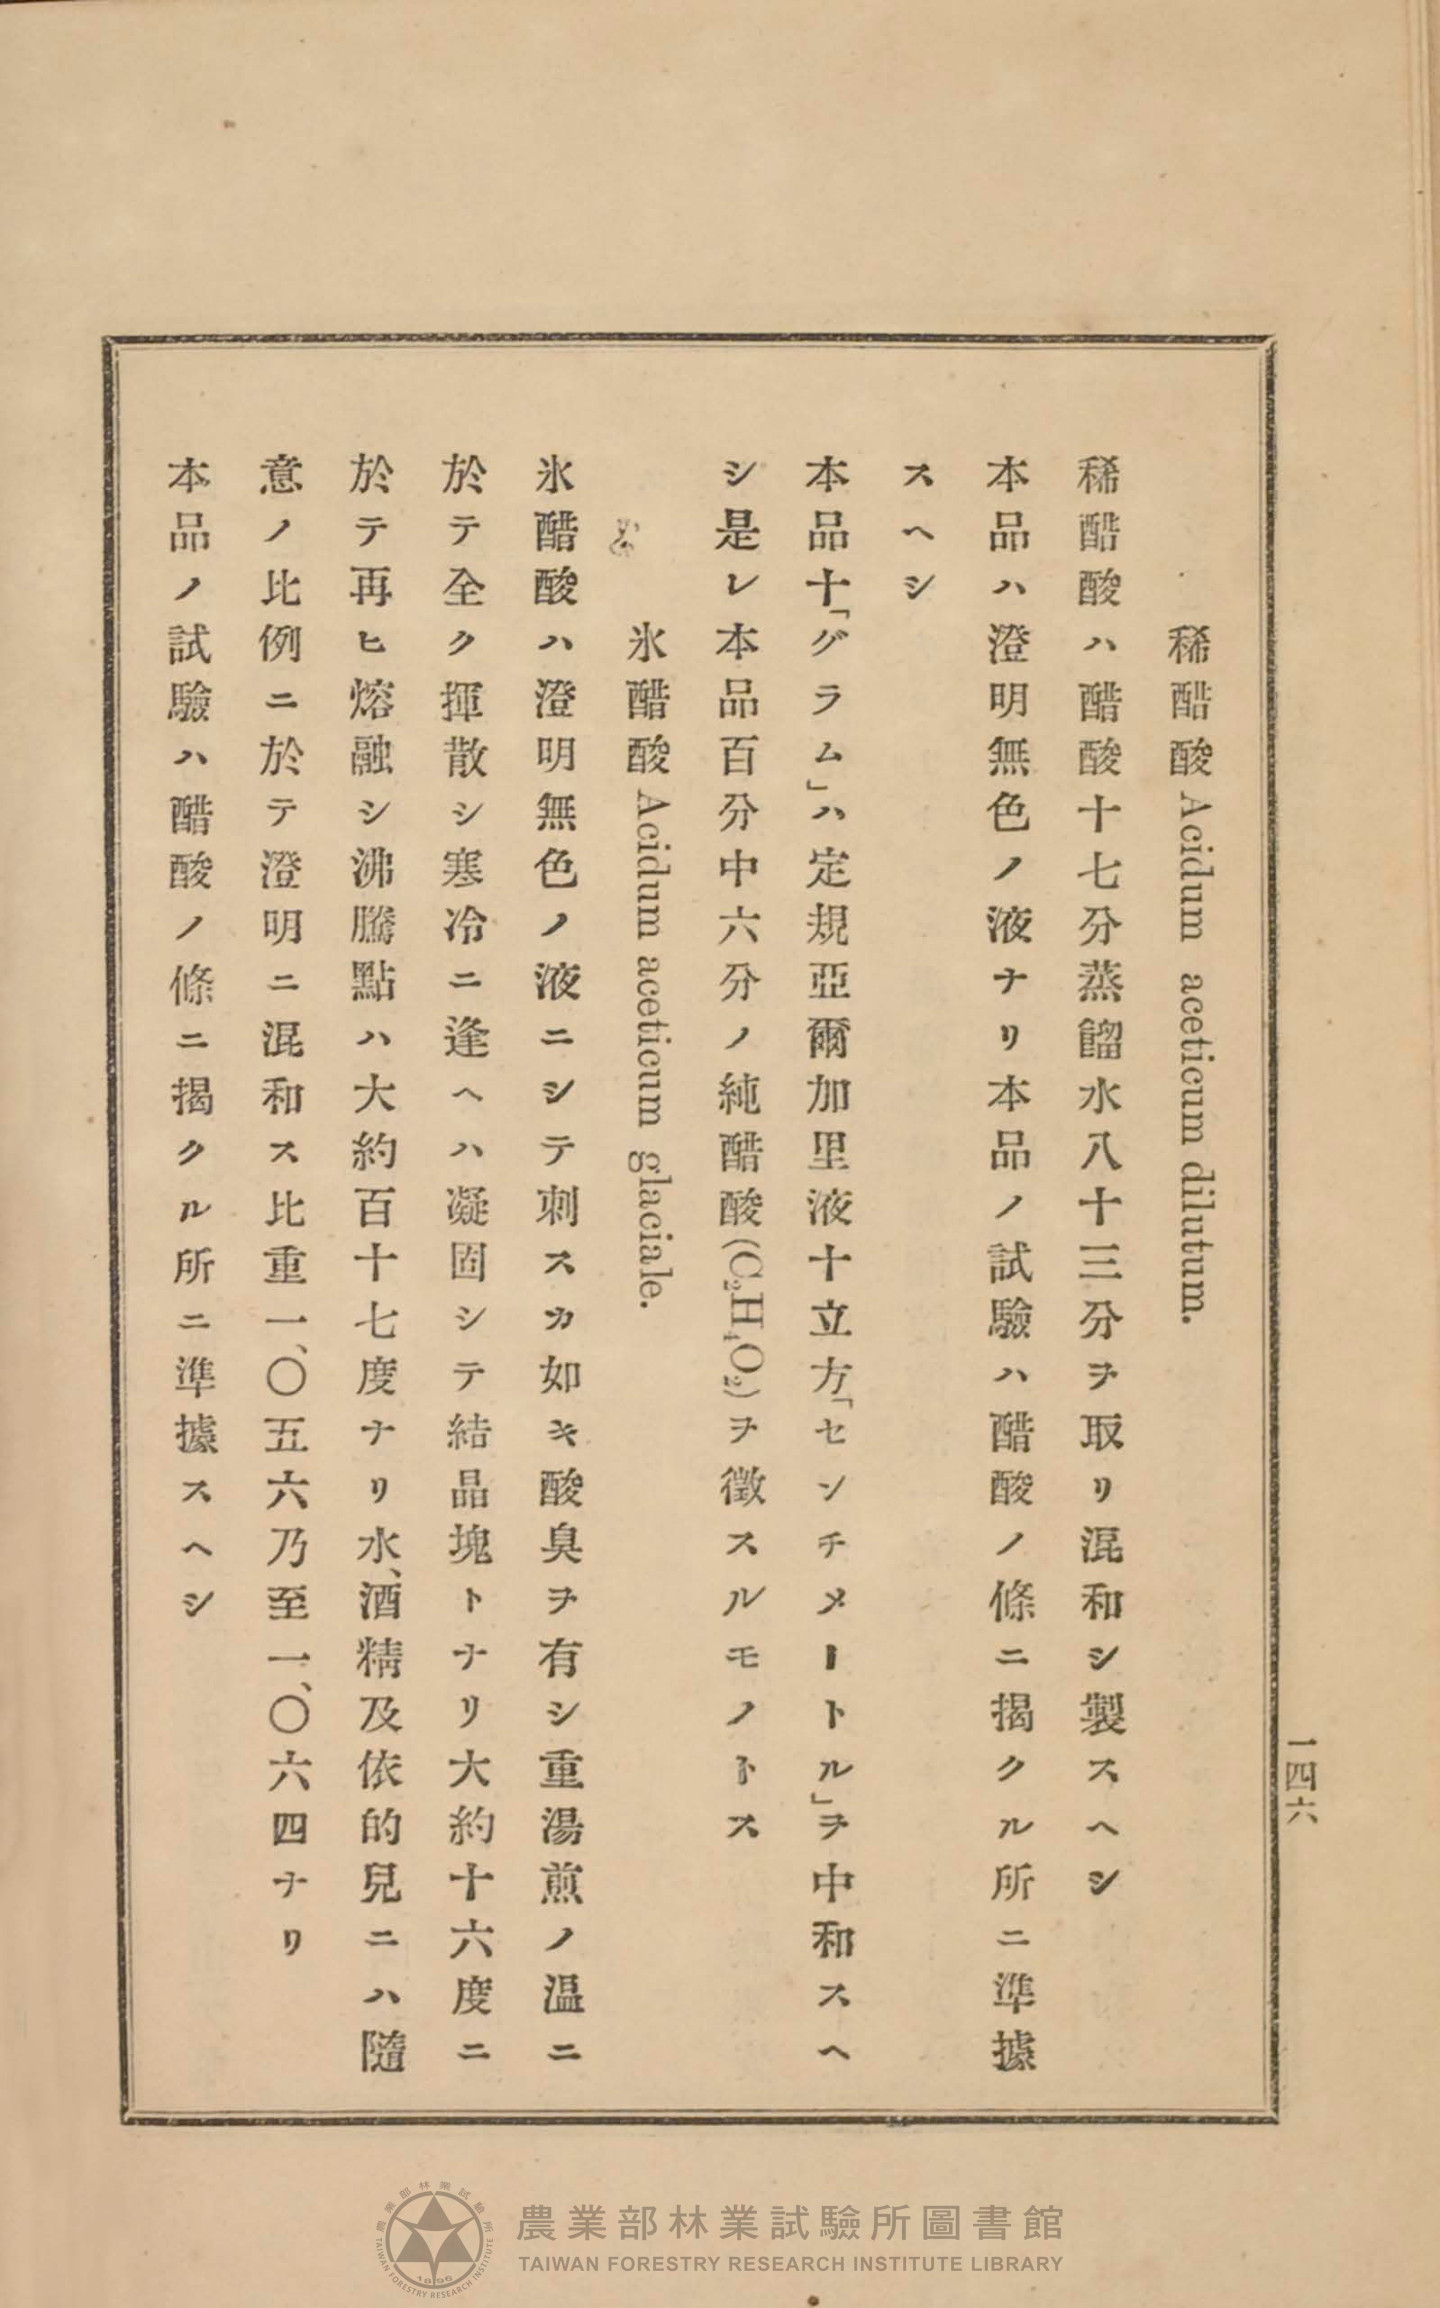 一四六
稀醋酸 Acidum aceticum dilutum.
稀醋酸ハ醋酸十七分蒸餾水八十三分ヲ取リ混和シ製スヘシ
本品ハ澄明無色ノ液ナリ本品ノ試驗ハ醋酸ノ條ニ揭クル所ニ準據
スヘシ
本品十「グラム」ハ定規亞爾加里液十立方「センチメートル」ヲ中和スヘ
シ是レ本品百分中六分ノ純醋酸(C₂H₄O₂)ヲ徵スルモノトス
氷醋酸 Acidum aceticum glaciale.
氷醋酸ハ澄明無色ノ液ニシテ刺スカ如キ酸臭ヲ有シ重湯煎ノ温ニ
於テ全ク揮散シ寒冷ニ逢ヘハ凝固シテ結晶塊トナリ大約十六度ニ
於テ再ヒ熔融シ沸騰點ハ大約百十七度ナリ水、酒精及依的兒ニハ隨
意ノ比例ニ於テ澄明ニ混和ス比重一、〇五六乃至一、〇六四ナリ
本品ノ試驗ハ醋酸ノ條ニ揭クル所ニ準據スヘシ
農業部林業試驗所圖書館
TAIWAN FORESTRY RESEARCH INSTITUTE LIBRARY
農業部林業試驗所
TAIWAN FORESTRY RESEARCH INSTITUTE
1896